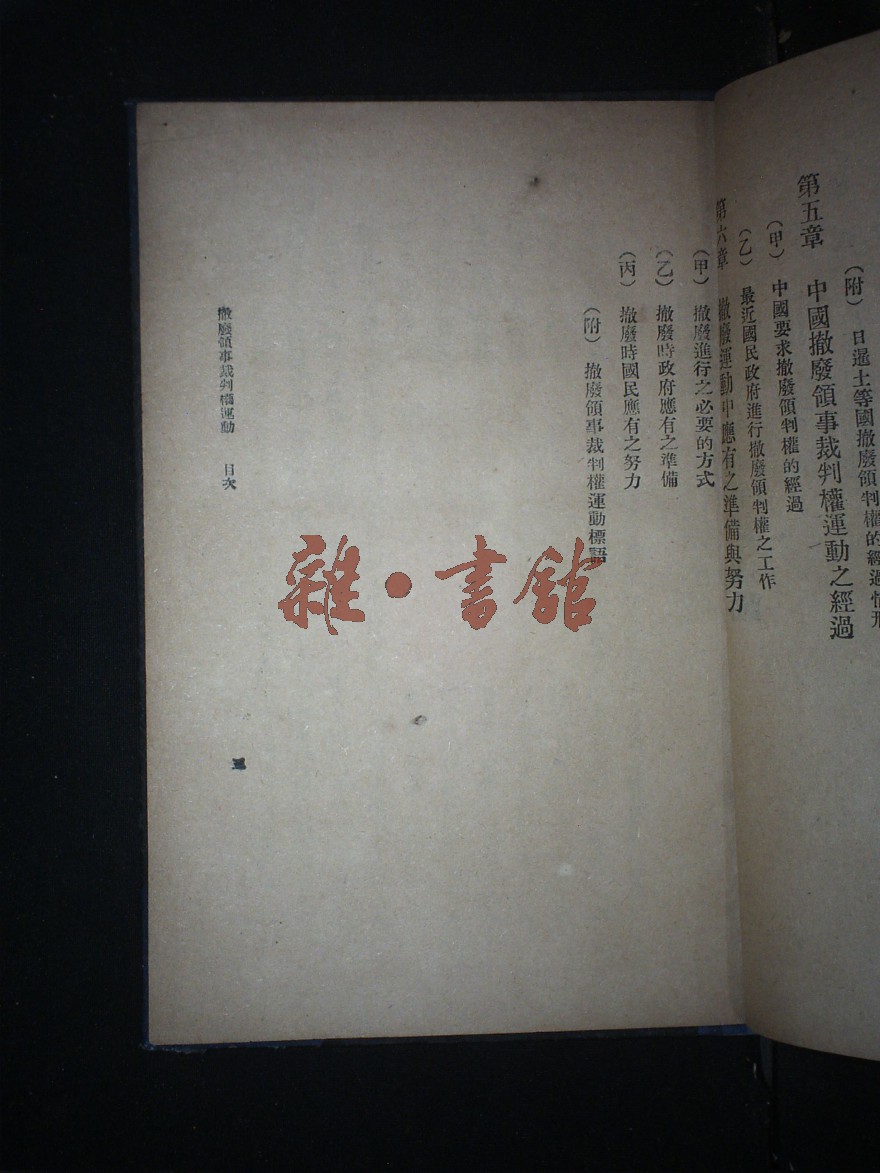 (附) 日暹土等國撤廢領判權的經過情形
第五章 中國撤廢領事裁判權運動之經過
(甲) 中國要求撤廢領判權的經過
(乙) 最近國民政府進行撤廢領判權之工作
第六章 撤廢運動中應有之準備與努力
(甲) 撤廢進行之必要的方式
(乙) 撤廢時政府應有之準備
(丙) 撤廢時國民應有之努力
(附) 撤廢領事裁判權運動標語
撤廢領事裁判權運動 目次
三
雜·書館